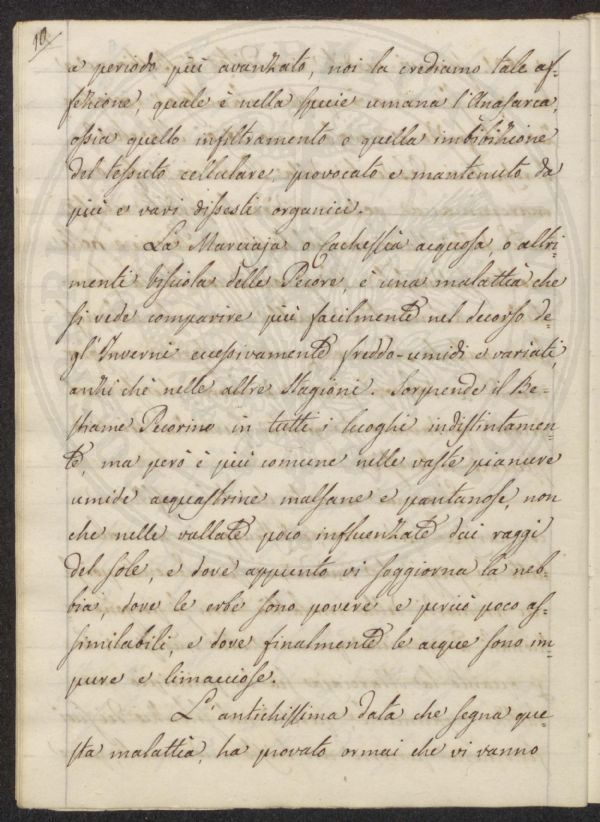 10
a periodo più avanzato, noi la crediamo tale af=
fezione, quale è nella specie umana l'Anasarca,
ossia quello infiltramento o quella imbibizione
del tessuto cellulare, provocato e mantenuto da
più e vari dissesti organici.
La Marciaja o Cachessia acquosa, o altri=
menti bisciola delle Pecore, è una malattia che
si vede comparire più facilmente nel decorso de=
gl'Inverni eccessivamente freddo-umidi e variati,
anzi chè nelle altre Stagioni. Sorprende il Be=
stiame Pecorino in tutti i luoghi indistintamen=
te, ma però è più comune nelle vaste pianure
umide acquastrine malsane e pantanose, non
che nelle vallate poco influenzate dai raggi
del sole, e dove appunto vi soggiorna la neb=
bia, dove le erbe sono povere e perciò poco as=
similabili, e dove finalmente le acque sono im=
pure e limacciose.
L'antichissima data che segna que=
sta malattia, ha provato ormai che vi vanno